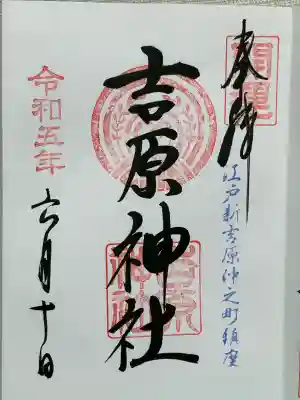 開運
奉拝
江戸新吉原仲之町鎮座
吉原神社
吉原
神社
令和五年
六月十日